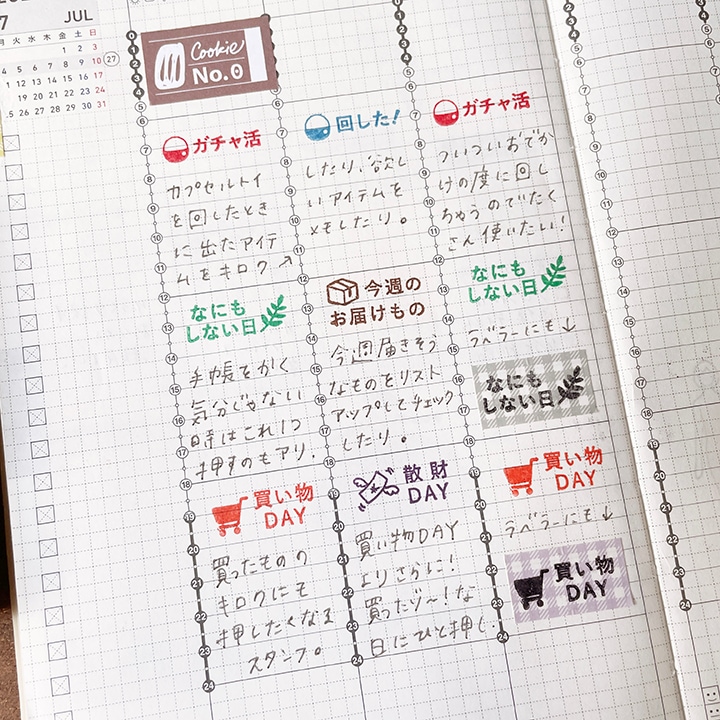 7 JUL
月 火 水 木 金 土 日
1 2 3
4 5 6 7 8 9 10
11 12 13 14 15 16 17
18 19 20 21 22 23 24
25 26 27 28 29 30 31
27
Cookie
No.0
ガチャ活
カプセルトイ
を回したとき
に出たアイテ
ムをキロク↗
回した!
したり、欲し
いアイテムを
メモしたり。
ガチャ活
ついついおでか
けの度に回し
ちゃうのでたく
さん使いたい!
なにも
しない日
手帳をかく
気分じゃない
時はこれ1つ
押すのもアリ.
今週の
お届けもの
今週届きそう
なものをリスト
アップしてチェック
したり。
なにも
しない日
ラベラーにも↓
なにも
しない日
買い物
DAY
買ったものの
キロクにも
押したくなる
スタンプ。
散財
DAY
買い物DAY
よりさらに!
買ったゾ〜!な
日にひと押し.
買い物
DAY
ラベラーにも↓
買い物
DAY